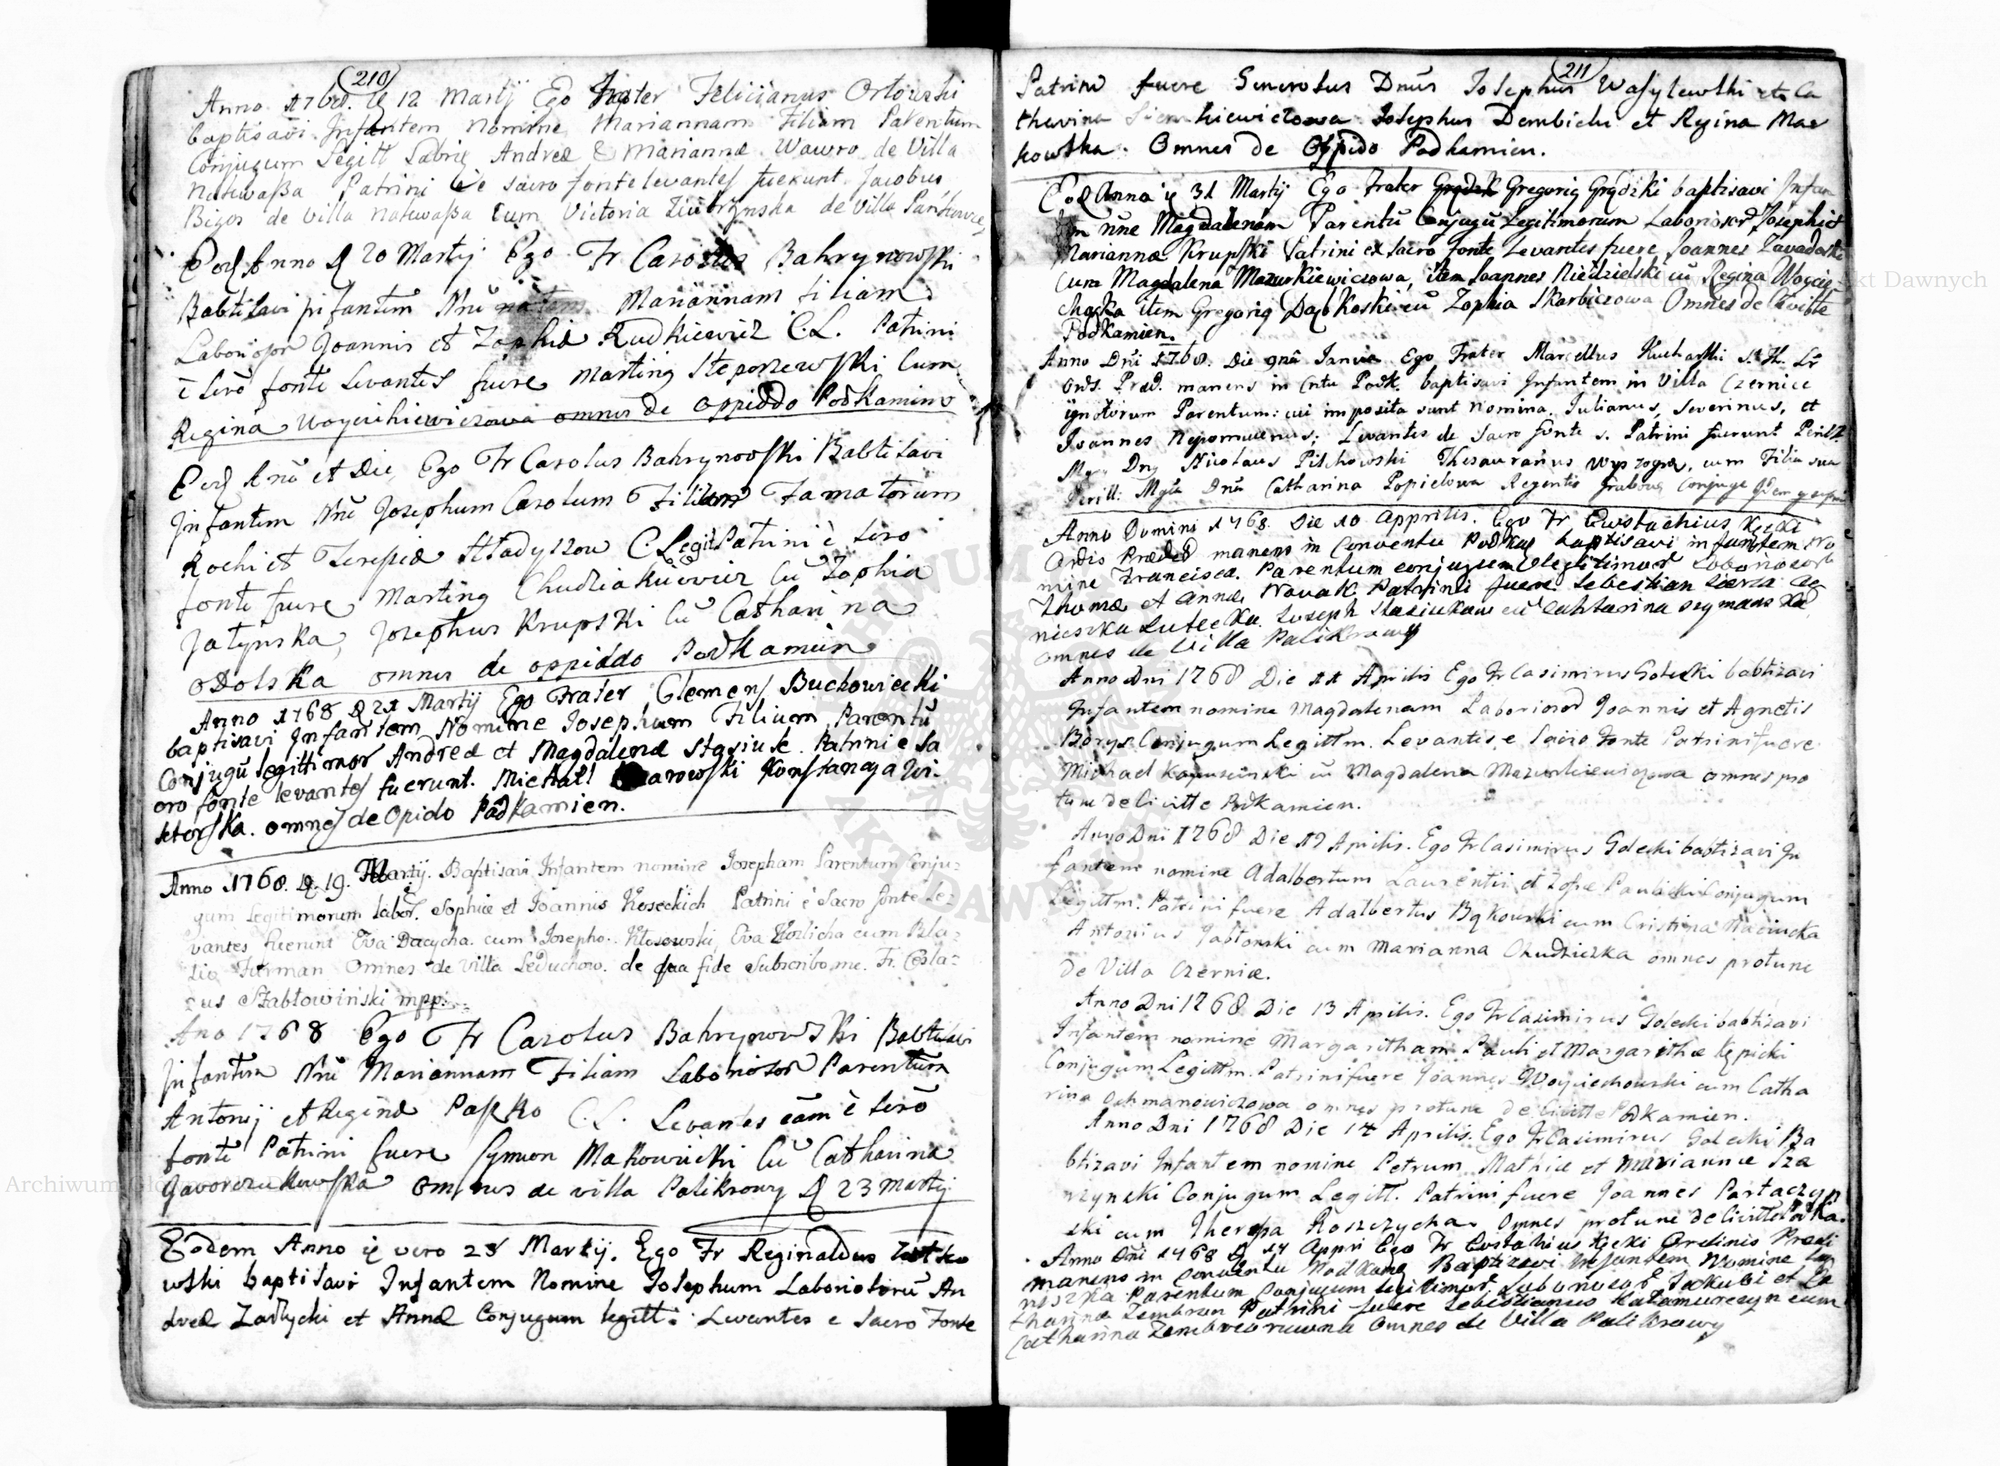 210
Anno 1768. die 12 Martij Ego Frater Felicianus Orłowski
baptisavi Infantem Nomine Mariannam Filiam Parentum
Conjugum Legitt Andreæ & Mariannæ Wawro de Villa
Nakwaßa Patrini de sacro fonte levantes fuerunt Jacobus
Bigos de Villa Nakwaßa cum Victoria de Villa
Eod Anno D 20 Martij Ego Fr Carolus Bahrynowski
Babtisavi infantem Nrũ Mariannam filiam
Laboriosor Joannis et Zophiæ Rudkiewicz C.L. Patrini
è sero fonte levantes fuere Marting Steporzewski Cum
Regina Woyciehiewiczowa omnes de oppiddo Podkamino
Eod Anõ et Die, Ego Fr Carolus Bahrynowski Babtisavi
Infantem Nrũ Josephum Carolum Filium Famatorum
Rochi et Teresiæ Hładyszow C. Legit Patrini è sero
fonte fuere Marting Chudziakiewicz Cũ Zophia
Jatynska, Josephus Krupski Cũ Catharina
oDolska omnes de oppiddo Podkamien
Anno 1768 D 21 Martij Ego Frater Clemens Buchowiecki
baptisavi Infantem Nomine Josephum Filium Parentũ
Conjugũ legittimor Andreæ et Magdalenæ Stasiuk. Patrini e sa
cro fonte levantes fuerunt. Michael Konstancya Wi
ktorska. omnes de Opido Podkamien.
Anno 1768. D. 19. Martij. Baptisavi Infantem nomine Josepham Parentum Conju:
gum legitimorum labor. Sophiæ et Joannis Koseckich Patrini è Sacro fonte Le:
vantes fuerunt Eva Dacycha cum Josepho Kłosowski, Eva Kozlicha cum Bla:
sio Furman Omnes de Villa Leduchow. de qua fide Subscribo me. Fr. Cesla:
us Szabłowiński mpp.
Ano 1768 Ego Fr Carolus Bahrynowski Babtisavi
Infantem Nrũ Mariannam Filiam Laboriosor Parentum
Antonij et Reginæ Paszko C.L. Levantes eam è sero
fonte Patrini fuere Symon Makowiecki Cũ Catharina
Jaworczukowska omnes de villa Palikrowy D 23 Martij
Eodem Anno Die vero 25 Martij. Ego Fr Reginaldus
wski baptisavi Infantem Nomine Josephum Laboriosorũ An
dreæ Zadłycki et Annæ Conjugum legitt: Levantes e Sacro Fonte
211
Patrini fuere Generosus Dnus Josephus Wasylewski et Ca
tharina Josephus Dembicki et Regina Mar
kowska. Omnes de Oppido Podkamien.
Eod Anno D 31 Martij Ego Frater Gregorig Grodzki baptisavi Infan
nne Magdalenam Parentũ Conjugũ Legitimorum Laboriosor Josephi et
Mariannæ Krupski Patrini ex sacro fonte Levantes fuere Joannes Zawadzki
cum Magdalena Mazurkiewiczowa, item Joannes Niedzielski cũ Regina Woycie
chowska item Gregorig Dąbkoski cũ Zophia Skarbiczowa Omnes de Civitte
Podkamien.
Anno Dni 1768. Die 9na Ianuie Ego Frater Marcellus Kucharski S. Th. Lr
Ords. Præd. manens in Cntu Podk. baptisavi Infantem in Villa Czernice
ignotorum Parentum: cui imposita sunt Nomina. Iulianus, Severinus, et
Joannes Nepomucenus; Levantes de Sacro fonte s. Patrini fuerunt Perill.
Mg. Dng Nicolaus Pilchowski Thesaurarius Wyszogr, cum Filia sua
Perill: Mgca Dna Catharina Popielowa Regentis Grabow Conjuge
Anno Domini 1768. Die 10 Apprilis. Ego Fr Ewstachius Kęcki
Ordis Præded manens in Conventu Podkag baptisavi infantem No
mine Francisca. Parentum conjugum legitimor Laborioror
Thomæ et Annæ Nowak Patrinti fuere Sebestian Czerza Ag
nieszka Łutecka. Joseph Stasiukow cũ Cahtarina Szymans Ka
omnes de Villa Palikrowy
Anno Dni 1768 Die 11 Aprilis Ego Fr Casimirus Golecki babtizavi
Infantem nomine Magdalenam Laboriosor Joannis et Agnetis
Borys Conjugum Legittm. Levantes, e Sacro Fonte Patrini fuere
Michael Kapuscinski cũ Magdalena Mazurkiewiczowa omnes pro
tunc de Civitte Podkamien.
Anno Dni 1768 Die 17 Aprilis. Ego Fr Casimirus Golecki babtizavi In
fantem nomine Adalbertum Laurentii et Zofiæ Pawlicki Conjugum
Legittm. Patrini fuere Adalbertus Bąkowski cum Cristina Maciucka
Antonius Jabłonski cum Marianna Chudzicka omnes protunc
de Villa Czernicæ.
Anno Dni 1768 Die 13 Aprilis. Ego Fr Casimirus Golecki babtizavi
Infantem nomine Margaritham Pauli et Margarithæ Kępicki
Conjugum Legittm. Patrini fuere Joannes Woyciechowski cum Catha
rina Ochmanowiczowa omnes protunc de Civitte Podkamien.
Anno Dni 1768 Die 14 Aprilis. Ego Fr Casimirus Golecki Ba
btizavi Infantem nomine Petrum Mathiæ et Mariannæ Sza
rzynski Conjugum Legitt. Patrini fuere Joannes Partaczyn
ski cum Theresa Roszczycha. Omnes protunc de Civitte Podka.
Anno Dni 1768 D 14 Appri Ego Fr Eustachius Kęcki Ordinis Predi
manens in Conventu Podkang Baptizavi Infantem Nomine
Parentum Conjugum legitimor Laboriosor Jackubi et Ca
tharina Zembron Patrini fuere Sebestianus Katamureczyn cum
Catharina Zembrorowna Omnes de Villa Palikrowy
Archiwum Główne Akt Dawnych
Archiwum Główne Akt Dawnych
ARCHIWUM GŁÓWNE AKT DAWNYCH